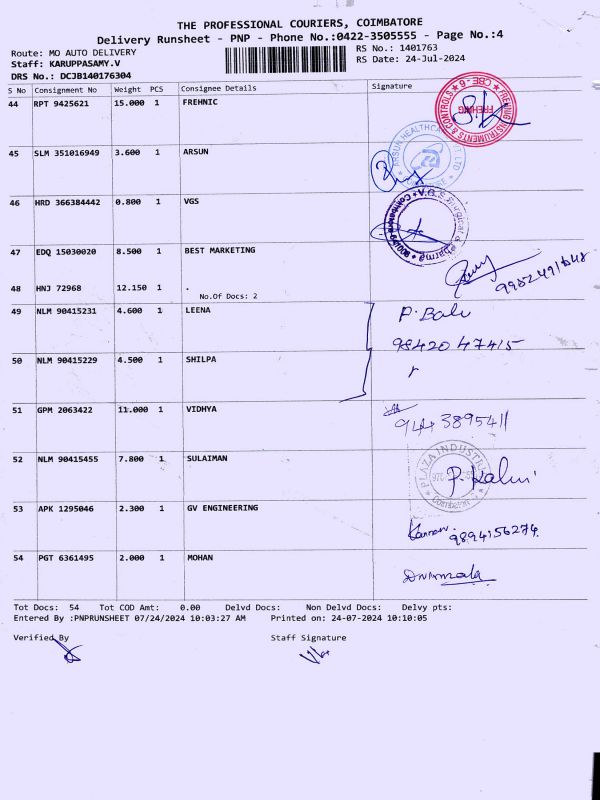 THE PROFESSIONAL COURIERS, COIMBATORE
Delivery Runsheet - PNP - Phone No.:0422-3505555 - Page No.:4
Route: MO AUTO DELIVERY
RS No.: 1401763
Staff: KARUPPASAMY.V
RS Date: 24-Jul-2024
DRS No.: DCJB140176304
S No Consignment No Weight PCS Consignee Details Signature
44 RPT 9425621 15.000 1 FREHNIC
45 SLM 351016949 3.600 1 ARSUN
46 HRD 366384442 0.800 1 VGS
47 EDQ 15030020 8.500 1 BEST MARKETING
48 HNJ 72968 12.150 1 .
No.Of Docs: 2
49 NLM 90415231 4.600 1 LEENA P. Balu
98420 47415
50 NLM 90415229 4.500 1 SHILPA
51 GPM 2063422 11.000 1 VIDHYA
52 NLM 90415455 7.800 1 SULAIMAN
PLAZA INDUSTR
Coimbatore
53 APK 1295046 2.300 1 GV ENGINEERING
9894156274
54 PGT 6361495 2.000 1 MOHAN
Tot Docs: 54 Tot COD Amt: 0.00 Delvd Docs: Non Delvd Docs: Delvy pts:
Entered By :PNPRUNSHEET 07/24/2024 10:03:27 AM Printed on: 24-07-2024 10:10:05
Verified By Staff Signature